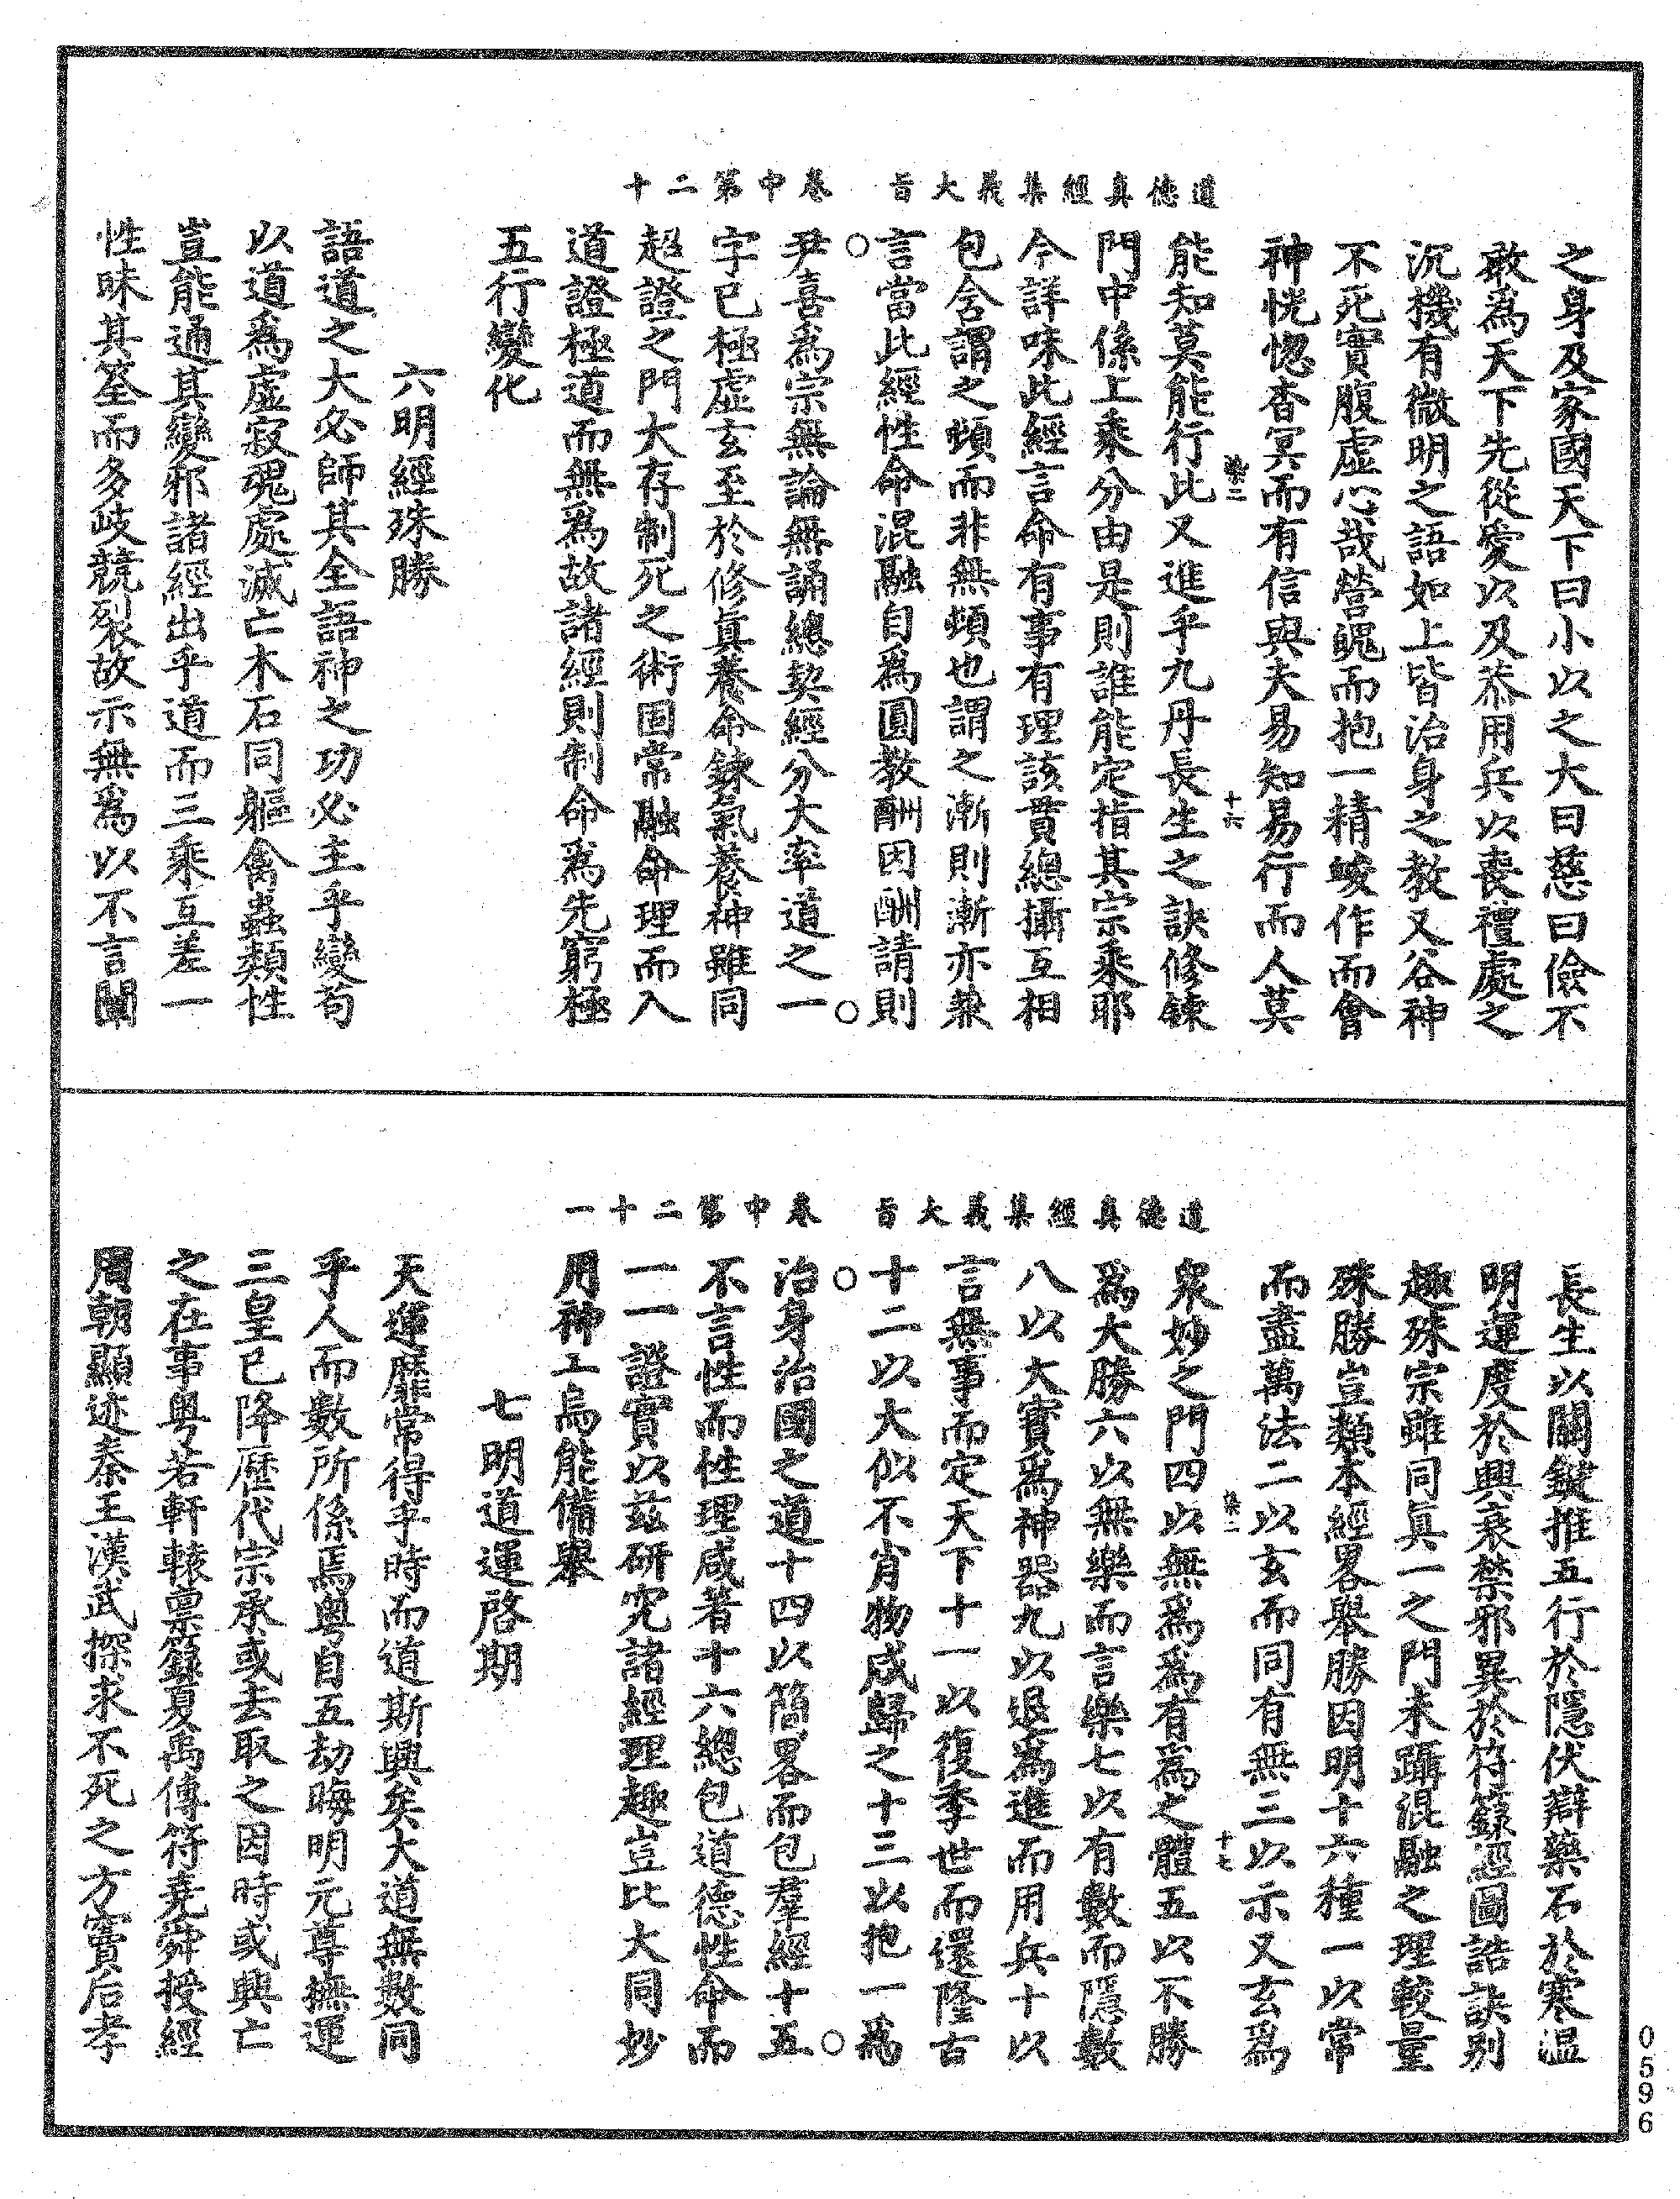 道德真經集義大旨　卷中第二十
之身及家國天下曰小以之大曰慈曰儉不
敢為天下先從愛以及恭用兵以喪禮處之
沉機有微明之語如上皆治身之教又谷神
不死實腹虛心哉營魄而抱一精峻作而會
神恍惚杳冥而有信與夫易知易行而人莫
能知莫能行此又進乎九丹長生之訣修鍊
門中係上乘分由是則誰能定指其宗乘耶
今詳味此經言命有事有理該貫總攝互相
包含謂之頓而非無頓也謂之漸則漸亦兼
言當此經性命混融自為圓教酬因酬請則
尹喜為宗無論無誦總契經分大率道之一
字已極虛玄至於修真養命鍊氣養神雖同
超證之門大存制死之術固常融命理而入
道證極道而無為故諸經則制命為先窮極
五行變化
六明經殊勝
語道之大必師其全語神之功必主乎變苟
以道為虛寂覔處滅亡木石同軀禽蟲類性
豈能通其變邪諸經出乎道而三乘互差一
性昧其筌而多岐競裂故示無為以不言闡
道德真經集義大旨　卷中第二十一
長生以關鍵推五行於隱伏辯藥石於寒溫
明運度於興衰禁邪異於符籙經圖誥訣別
趣殊宗雖同真一之門未躡混融之理較量
殊勝豈類本經畧舉勝因明十六種一以常
而盡萬法二以玄而同有無三以示又玄為
眾妙之門四以無為為有為之體五以不勝
為大勝六以無樂而言樂七以有數而隱數
八以大寶為神器九以退為進而用兵十以
言無事而定天下十一以復季世而還隆古
十二以大似不肖物咸歸之十三以抱一為
治身治國之道十四以簡畧而包羣經十五
不言性而性理咸著十六總包道德性命而
一一證實以茲研究諸經理趣豈比大同妙
用神工烏能備舉
七明道運啓期
天運靡常得乎時而道斯興矣大道無數同
乎人而數所係焉粵自五劫晦明元尊撫運
三皇已降歷代宗承或去取之因時或興亡
之在事粵若軒轅稟籙夏禹傳符堯舜授經
周朝顯迹秦王漢武探求不死之方竇后孝
0596